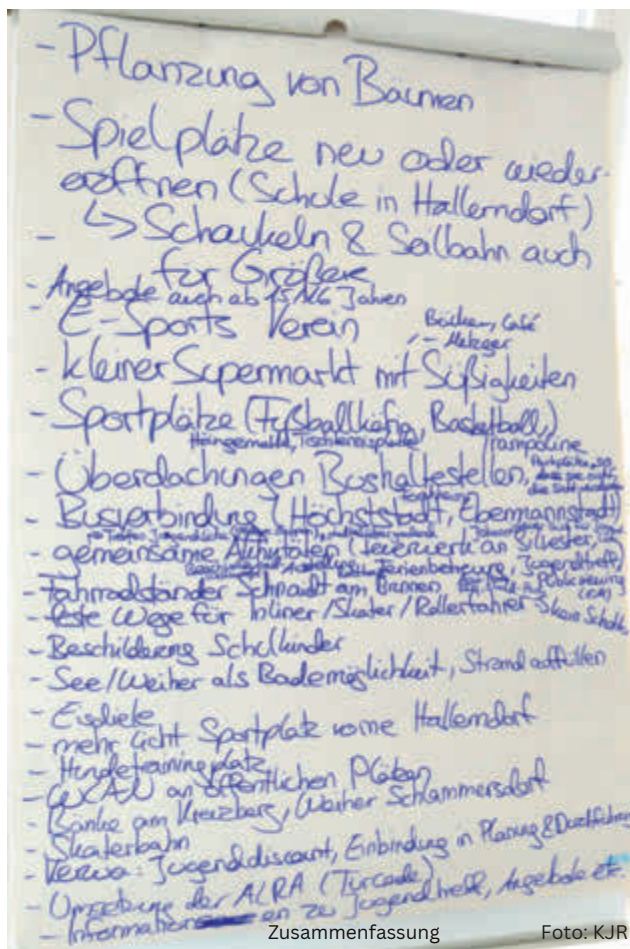 - Pflanzung von Bäumen
- Spielplätze neu oder wieder-
eröffnen (Schule in Hallerndorf)
↳ Schaukeln & Seilbahn auch
für Größere
- Angebote auch ab 15/16 Jahren
- E-Sports Verein
Bäcker, Café
- Metzger
- kleiner Supermarkt mit Süßigkeiten
- Sportplätze (Fußballkäfig, Basketball,)
Trampoline
- Überdachungen Bushaltestellen,
- Busverbindung (Höchstadt, Ebermannstadt)
- gemeinsame Aktivitäten (Feuerwerk an Silvester,
Ferienbetreuung, Jugendtreff)
- Fahrradständer Schnaid am Brunnen
Public viewing
- feste Wege für Inliner/Skater/Rollerfahrer
- Beschilderung Schulkinder
- See/Weiher als Bademöglichkeit, Strand auffüllen
- Eisdiele
- mehr Licht Sportplatz vorne Hallerndorf
- Hundetrainingsplatz
- WLAN an öffentlichen Plätzen
- Bänke am Kreuzberg, Weiher Schlammersdorf
- Skaterbahn
- Jugenddiscount, Einbindung in Planung & Durchführung
- Umgebung der
- Informationen zu Jugendtreff, Angebote etc.
Zusammenfassung Foto: KJR